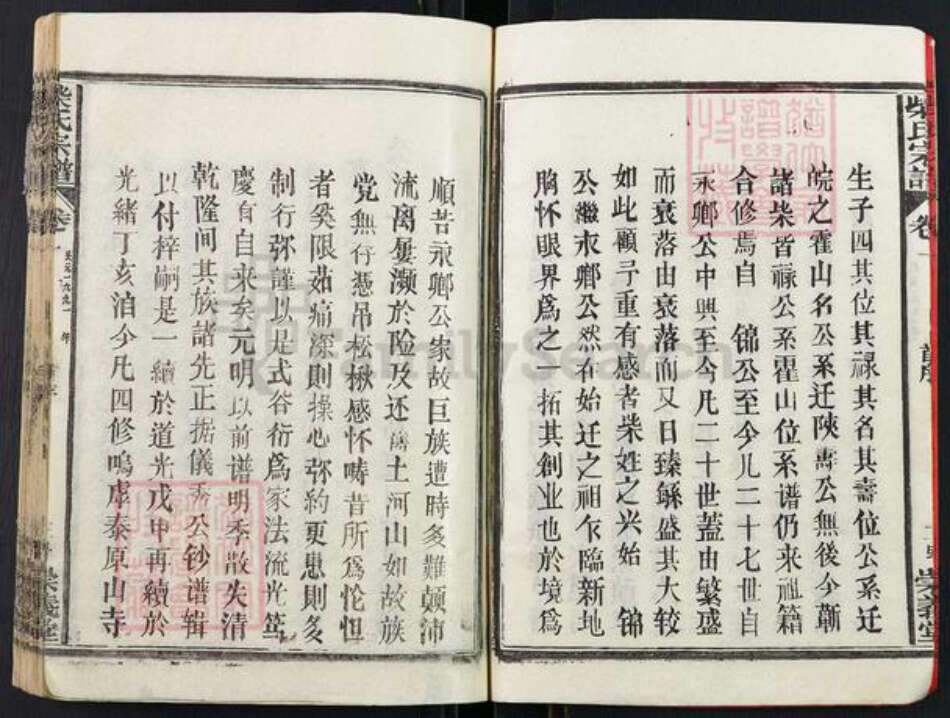 柴氏宗譜
卷一
首序
柴義堂
生子四其位其禄其名其壽位公系迁
皖之霍山名公系迁陕壽公無後今蘄
諸柴皆禄公系霍山位系谱仍来祖籍
合修焉自 錦公至今凡二十七世自
永鄉公中興至今凡二十世蓋由繁盛
而衰落由衰落而又日臻繇盛其大较
如此顧予重有感者柴姓之兴始 錦
公繼永鄉公然在始迁之祖乍臨新地
胸怀眼界爲之一拓其創业也於境爲
順苦永鄉公家故巨族遭時多難颠沛
流离屡濒於险及还 土河山如故族
党無存憑吊松楸感怀畴昔所爲怆怛
者奚限茹痛深则操心弥約更患则多
制行弥謹以是式谷衍爲家法流光笃
慶有自来矣元明以前谱明季散失清
乾隆间其族諸先正据儀秀公钞谱辑
以付梓嗣是一續於道光戊申再續於
光緒丁亥洎今凡四修嗚虖泰原山寺
柴氏宗譜
卷一
公元一九九一年
柴義堂
FamilySearch